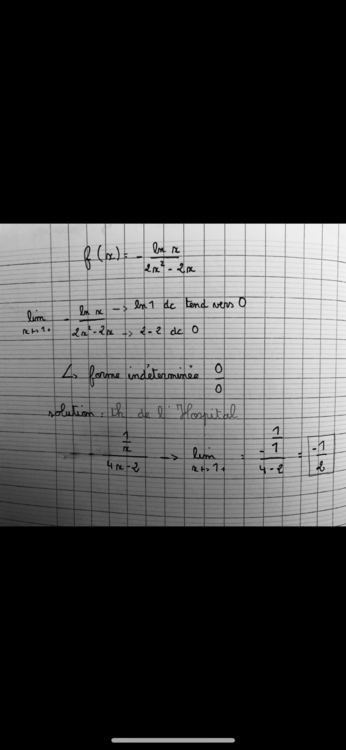 f(x) = - ln x / (2x² - 2x)
lim x→1+ - ln x / (2x² - 2x) → ln 1 dc tend vers 0 → 2-2 dc 0
↳ forme indéterminée 0/0
solution : th de l'Hospital
- (1/x) / (4x-2) → lim x→1+ = - (1/1) / (4-2) = -1/2